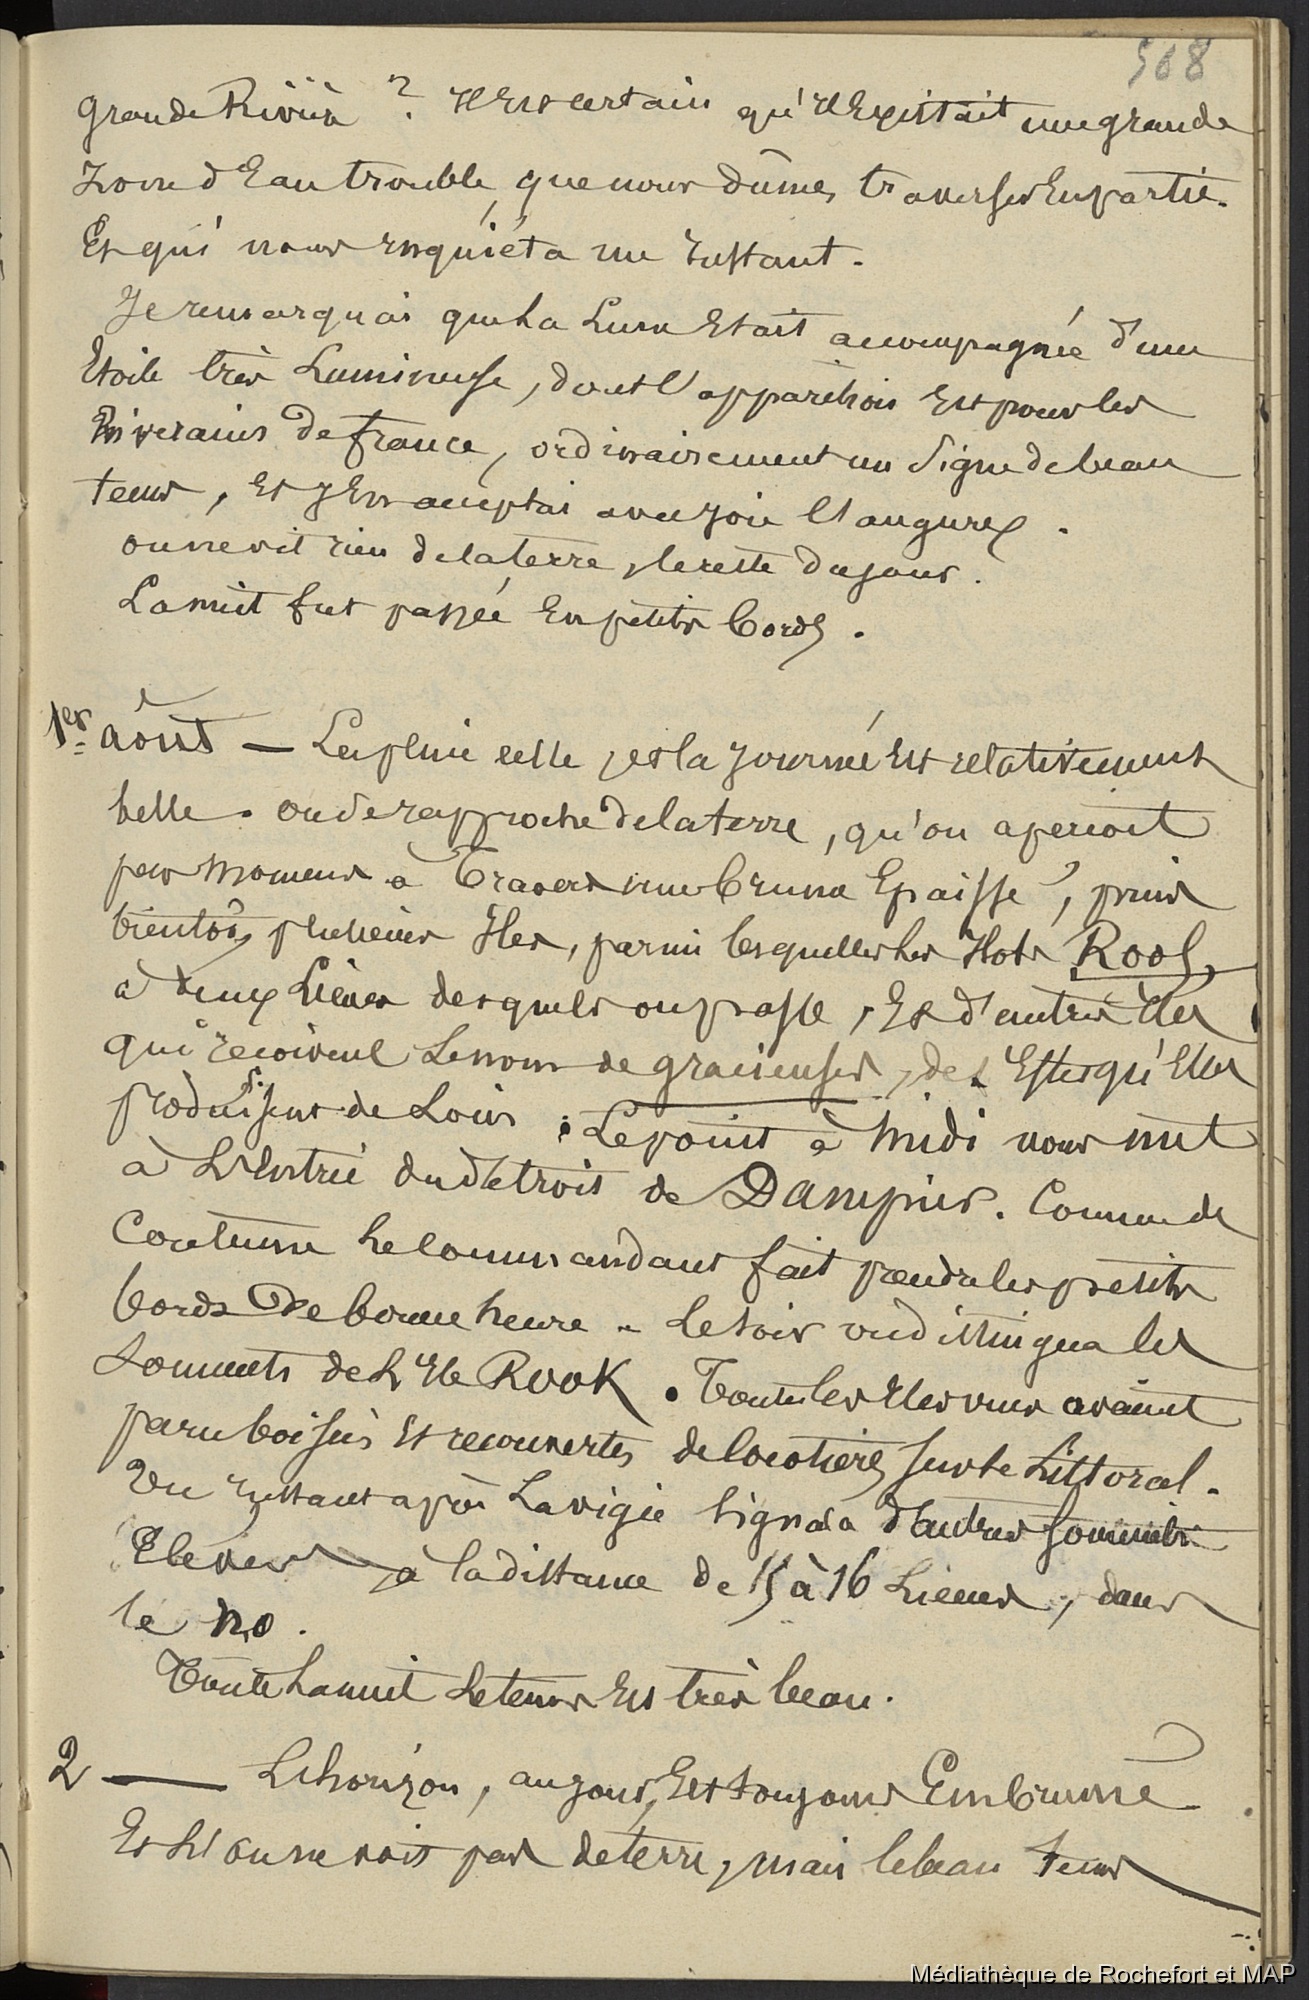 568
grande Rivière ? Il Est certain qu'il Existait une grande
Zone d'Eau trouble, que nous dûmes traverser En partie.
Et qui nous inquiéta un Instant.
Je remarquai que La Lune Etait accompagnée d'une
Etoile très Lumineuse, dont l'apparition Est pour les
Riverains de france, ordinairement un Signe de beau
tems, Et j'En acceptai avec joie l'augure.
on ne vit rien de la terre, le reste du jour.
La nuit fut passée En petits bords.
1er août — La pluie cesse, et la journée Est relativement
belle. on se rapproche de la terre, qu'on aperçoit
par momens à Travers une brume Epaisse, puis
bientôt, plusieurs Iles, parmi lesquelles les Ilots Rook,
à deux Lieues desquels on passe, Et d'autres Iles
qui reçoivent Le nom de gracieuses, de L'Effet qu'Elles
produisent de Loin. Le point à midi nous met
à L'Entrée du détroit de Dampier. Comme de
Coutume Le commandant fait prendre les petits
bords De bonne heure. Le soir on distingua les
Sommets de L'Ile Rook. Toutes les Iles vues avaient
paru boisées Et recouvertes de cocotiers sur le Littoral.
Un Instant après La vigie Signala d'autres Sommets
Elevés à la distance de 15 à 16 Lieues, dans
le no.
Toute La nuit Le tems Est très beau.
2 — L'horizon, au jour, Est toujours Embrumé
Et L'on ne voit pas de terre, mais le beau tems
Médiathèque de Rochefort et MAP